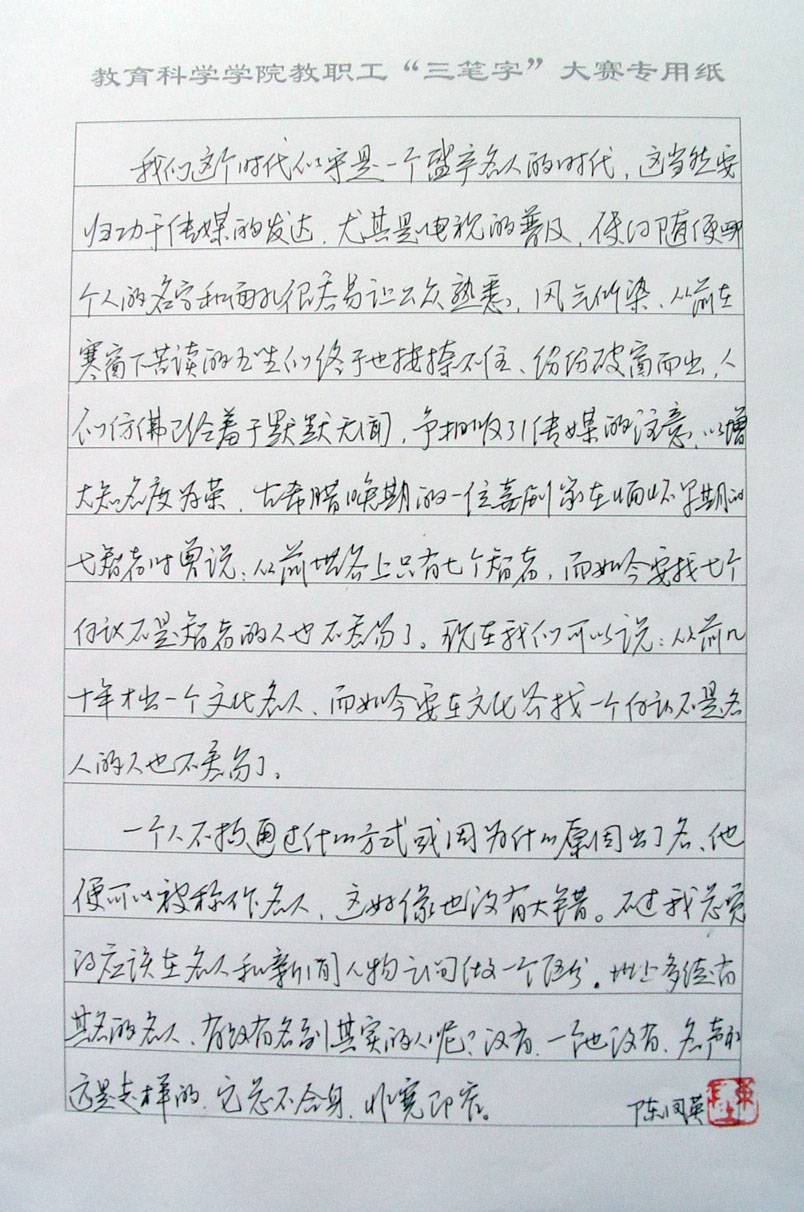 教育科学学院教职工“三笔字”大赛专用纸
我们这个时代似乎是一个盛产名人的时代，这当然要
归功于传媒的发达，尤其是电视的普及，使得随便哪
个人的名字和面孔很容易让公众熟悉，风气所染，从前在
寒窗下苦读的书生们终于也按捺不住，纷纷破窗而出，人
们仿佛已经羞于默默无闻，争相吸引传媒的注意，以增
大知名度为荣，古希腊晚期的一位喜剧家在缅怀早期的
七智者时曾说：从前世界上只有七个智者，而如今要找七个
自认不是智者的人也不容易了。现在我们可以说：从前几
十年才出一个文化名人，而如今要在文化界找一个自认不是名
人的人也不容易了。
一个人不拘通过什么方式或因为什么原因出了名，他
便可以被称作名人，这好像也没有大错。不过我总觉
得应该在名人和新闻人物之间做一个区分。世上多徒有
其名的名人，有没有名副其实的人呢？没有，一个也没有，名声
总是这样的，它总不合身，非宽即窄。